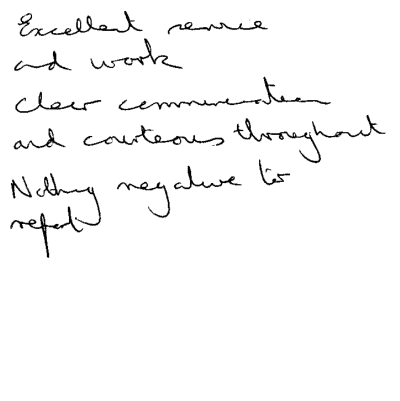 Excellent service
and work
Clear communication
and courteous throughout
Nothing negative to
report